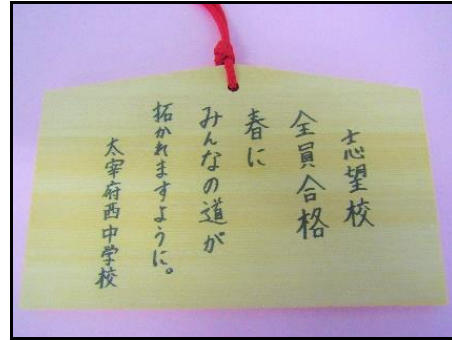 志望校
全員合格
春に
みんなの道が
拓かれますように。
太宰府西中学校